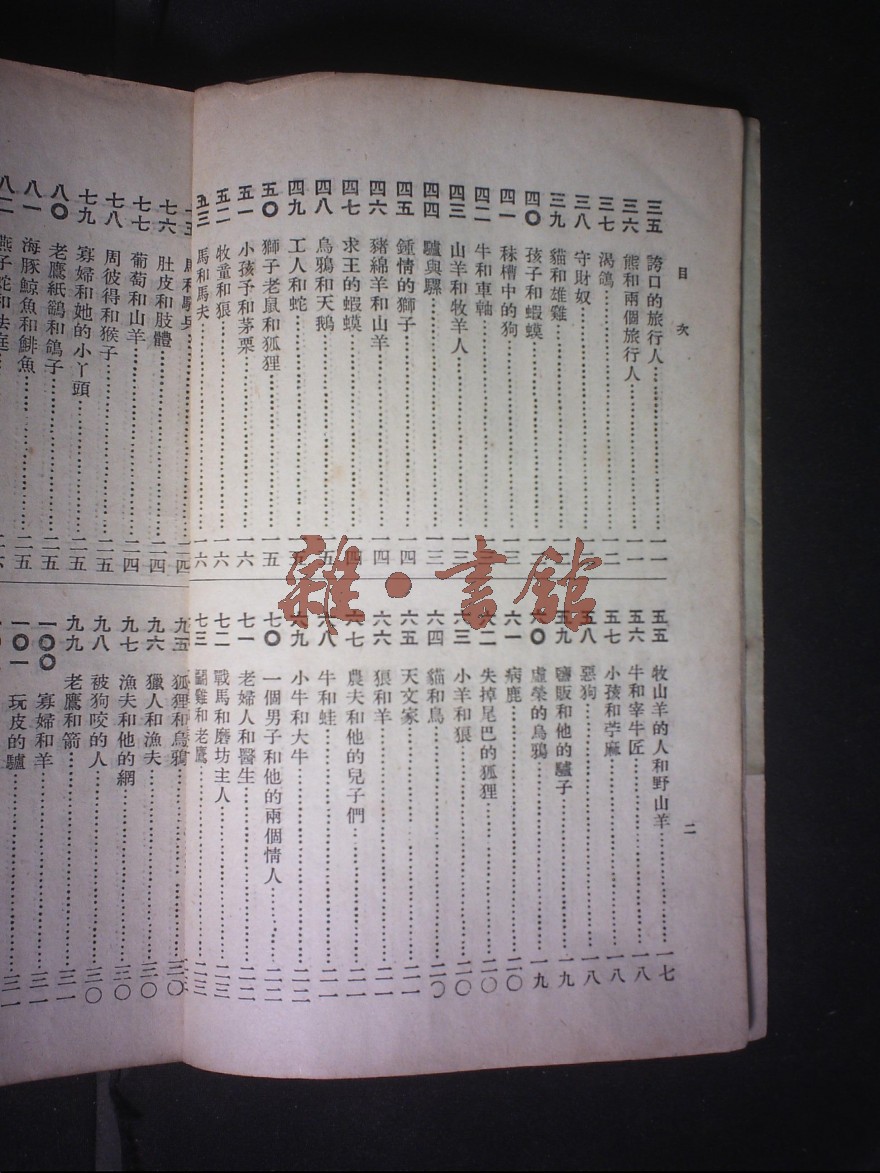 目次
三五 誇口的旅行人 一一
三六 熊和兩個旅行人 一一
三七 渴鴿 一二
三八 守財奴
三九 貓和雄雞
四〇 孩子和蝦蟆
四一 秣槽中的狗 一三
四二 牛和車軸
四三 山羊和牧羊人
四四 驢與騾 一三
四五 鍾情的獅子 一四
四六 豬綿羊和山羊 一四
四七 求王的蝦蟆
四八 烏鴉和天鵝
四九 工人和蛇
五〇 獅子老鼠和狐狸 一五
五一 小孩子和茅栗 一六
五二 牧童和狼 一六
五三 馬和馬夫 一六
五五 牧山羊的人和野山羊 一七
五六 牛和宰牛匠 一八
五七 小孩和苧麻 一八
五八 惡狗 一八
五九 鹽販和他的驢子 一九
六〇 虛榮的烏鴉 一九
六一 病鹿 二〇
六二 失掉尾巴的狐狸 二〇
六三 小羊和狼 二〇
六四 貓和鳥 二〇
六五 天文家 二一
六六 狼和羊 二一
六七 農夫和他的兒子們 二一
六八 牛和蛙 二一
六九 小牛和大牛 二二
七〇 一個男子和他的兩個情人 二二
七一 老婦人和醫生 二二
七二 戰馬和磨坊主人 二三
七三 鬪雞和老鷹 二三
二
馬和騎兵
七六 肚皮和肢體 二四
七七 葡萄和山羊 二四
七八 周彼得和猴子 二四
七九 寡婦和她的小丫頭 二五
八〇 老鷹紙鷂和鴿子 二五
八一 海豚鯨魚和鯡魚 二五
八二 燕子蛇和法庭
九五 狐狸和烏鴉
九六 獵人和漁夫 三〇
九七 漁夫和他的網 三〇
九八 被狗咬的人 三〇
九九 老鷹和箭 三一
一〇〇 寡婦和羊 三一
一〇一 玩皮的驢 三一
雜·書館